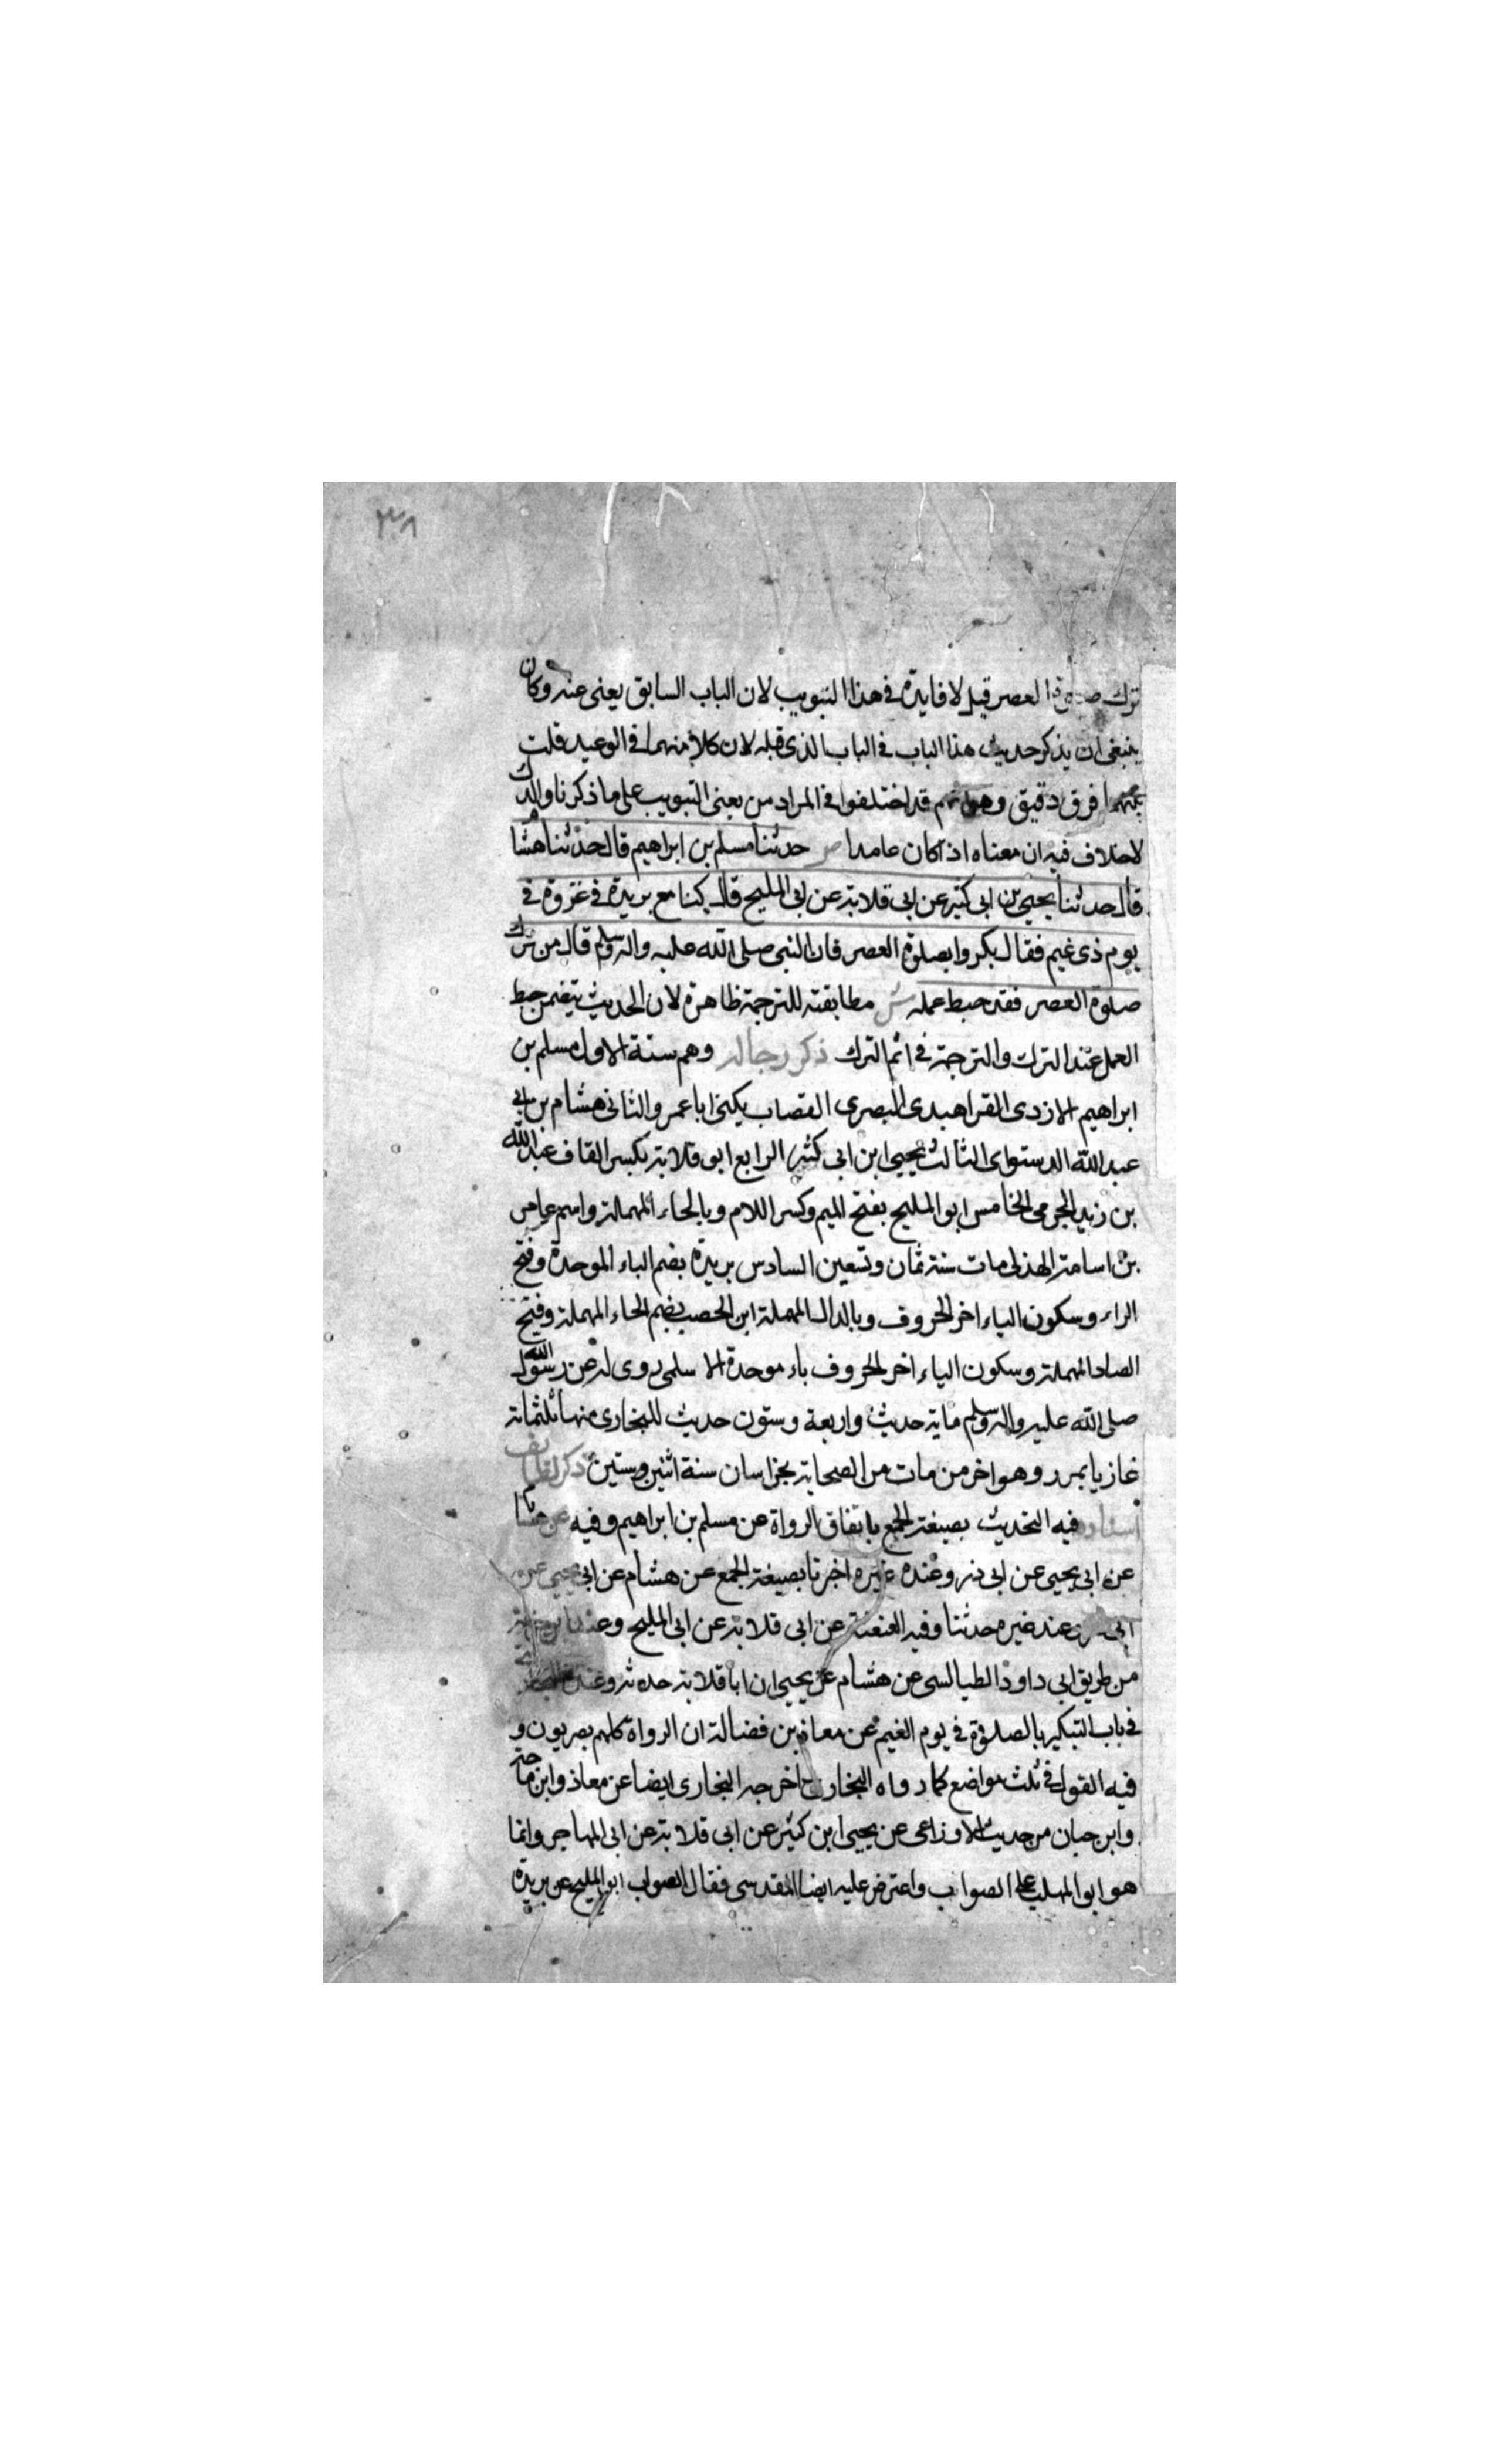 ٣٨
ترك صلوة العصر قيل لا فايدة في هذا التبويب لان الباب السابق يعنى عنه وكان
ينبغى ان يذكر حديث هذا الباب في الباب الذى قبله لان كلا منهما في الوعيد قلت
بينهما فرق دقيق وهو انهم قد اختلفوا في المراد من يعنى التبويب على ما ذكرنا والترك
لا خلاف فيه ان معناه اذا كان عامدا ص حدثنا مسلم بن ابراهيم قال حدثنا هشام
قال حدثنا يحيى بن ابى كثير عن ابى قلابة عن ابى المليح قال كنا مع بريدة في غزوة في
يوم ذى غيم فقال بكروا بصلوة العصر فان النبى صلى الله عليه واله وسلم قال من ترك
صلوة العصر فقد حبط عمله ش مطابقته للترجمة ظاهرة لان الحديث يتضمن حبط
العمل عند الترك والترجمة في اثم الترك ذكر رجاله وهم ستة الاول مسلم بن
ابراهيم الازدى القراهيدى البصرى القصاب يكنى ابا عمرو الثانى هشام بن ابى
عبد الله الدستواى الثالث يحيى ابن ابى كثير الرابع ابو قلابة بكسر القاف عبد الله
بن زيد الجرمى الخامس ابو المليح بفتح الميم وكسر اللام وبالحاء المهملة واسمه عامر
بن اسامة الهذلى مات سنة ثمان وتسعين السادس بريدة بضم الباء الموحدة وفتح
الراء وسكون الياء اخر الحروف وبالدال المهملة ابن الحصيب بضم الحاء المهملة وفتح
الصاد المهملة وسكون الياء اخر الحروف باء موحدة الاسلمى روى له عن رسول الله
صلى الله عليه واله وسلم ماية حديث واربعة وستون حديث للبخارى منها ثلثماتة
غازيا بمرو وهو اخر من مات من الصحابة بخراسان سنة اثنين وستين ذكر لطايف
اسناده فيه التحديث بصيغة الجمع باتفاق الرواة عن مسلم بن ابراهيم وفيه عن هشام
عن ابى يحيى عن ابى ذر وعنده غيره اخبرنا بصيغة الجمع عن هشام عن ابى يحيى عن
ابى عند غيره حدثنا وفيه العنعنة عن ابى قلابة عن ابى المليح وعند ابن خزيمة
من طريق ابى داود الطيالسى عن هشام عن يحيى ان ابا قلابة حدثه وعند
في باب التبكير بالصلوة في يوم الغيم عن معاذ بن فضالة ان الرواة كلهم بصريون و
فيه القول في ثلث مواضع كما رواه البخارى اخرجه البخارى ايضا عن معاذ وابن ماجة
وابن حبان من حديث الاوزاعى عن يحيى ابن كثير عن ابى قلابة عن ابى المهاجر وانما
هو ابو المهلب على الصواب واعترض عليه ايضا المقدسى فقال الصواب ابو المليح عن بريدة